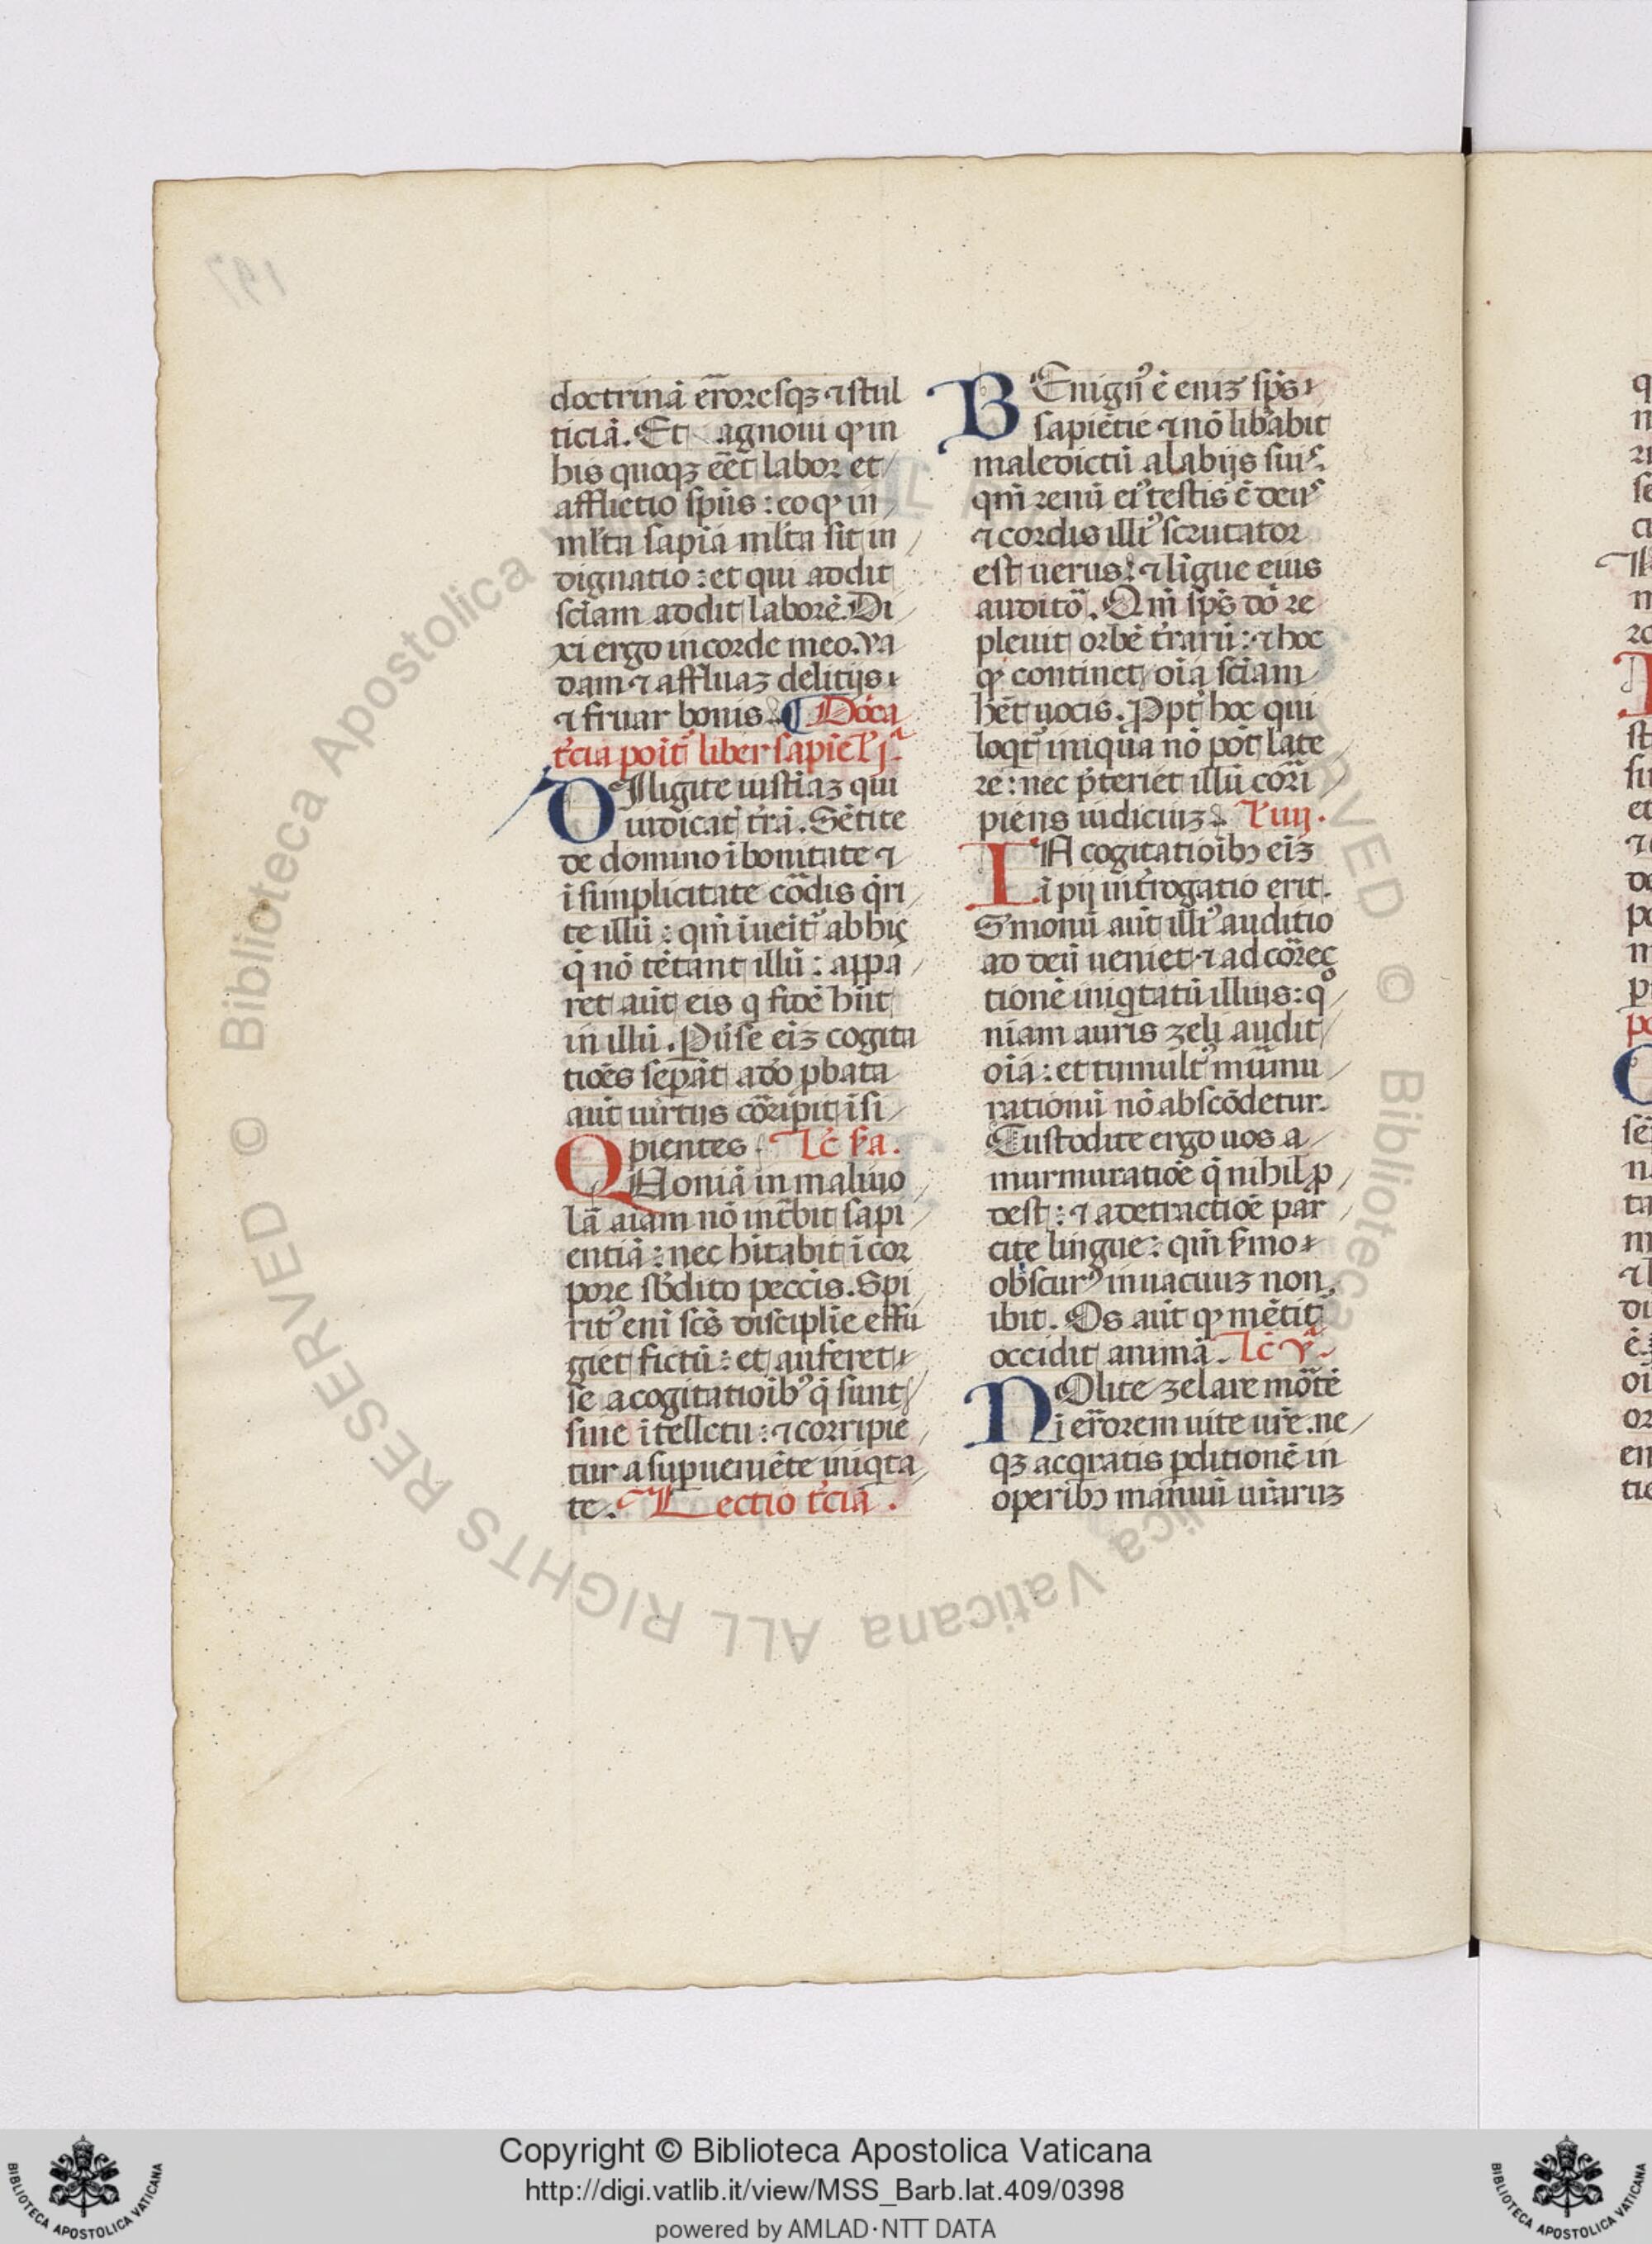 doctrinā erroresqꝫ ⁊ stul
ticiā. Et agnoui ꝙ in
his quoqꝫ eēt labor et
afflictio spūs : eo ꝙ in
ml̄ta sapia ml̄ta sit in
dignatio : et qui addit
sciam addit laborē. Di
xi ergo in corde meo. Va
dam ⁊ affluaꝫ delitijs
⁊ fruar bonis. ¶ Dōica
t̄cia poīt liber sapiē
DIligite iusticiaꝫ qui
iudicat̄ t̄rā. Sētite
de domino ī bonitate ⁊
ī simplicitate cordis q̄ri
te illū : qm̄ īueīt᷑ ab hiis
q̄ nō tētant illū : appa
ret aūt eis q̄ fidē hn̄t
in illū. Puˀse eīꝫ cogita
tiōes sepāt a dō ꝓbata
aūt uirtus corripit īsi
pientes. Lc̄ s̄a.
QUoniā in maliuo
lā aīam nō int̄bit sapi
entiā : nec hītabit ī cor
pore sb̄dito pecc̄is. Spi
ritꝰ enī sc̄s disciplīe effu
giet fictū : et auferet
se a cogitatioībꝰ q̄ sunt
sine ītellectu : ⁊ corripie
tur a suꝑueniēte iniqta
te. Lectio t̄cia.
BEnignꝰ ē eniꝫ sp̄s
sapiētie ⁊ nō lib̄abit
maledictū a labijs suis
qm̄ renū eiꝰ testis ē deus
⁊ cordis illiꝰ scrutator
est uerus : ⁊ līgue eius
auditor. Qm̄ sp̄s dō re
pleuit orbē t̄rarū : ⁊ hoc
ꝙ continet oīa sciam
hēt uocis. Ppt̄ hoc qui
loqt̄ iniqua nō pōt late
re : nec p̄teriet illū corri
piens iudiciuꝫ. L̄ iiij.
IN cogitatioībꝫ eīꝫ
īpij int̄rogatio erit.
S̄monū aūt illiꝰ auditio
ad deū ueniet ⁊ ad correc
tionē iniqtatū illius : qͦ
niam auris zeli audit
oīa : et tumultꝰ murmu
rationū nō abscōdetur.
Custodite ergo uos a
murmuratiōe q̄ nihil ꝓ
dest : ⁊ a detractiōe par
cite lingue : qm̄ s̄mo
obscurꝰ in uacuuꝫ non
ibit. Os aūt ꝙ mētit᷑
occidit animā. Lc̄ v.
NOlite zelare mortē
ī errorem uite ur̄e. ne
qꝫ acqratis ꝑditionē in
operibꝫ manuū ur̄aruꝫ
197
© Biblioteca Apostolica Vaticana ALL RIGHTS RESERVED
Copyright © Biblioteca Apostolica Vaticana
http://digi.vatlib.it/view/MSS_Barb.lat.409/0398
powered by AMLAD·NTT DATA
BIBLIOTECA APOSTOLICA VATICANA
BIBLIOTECA APOSTOLICA VATICANA